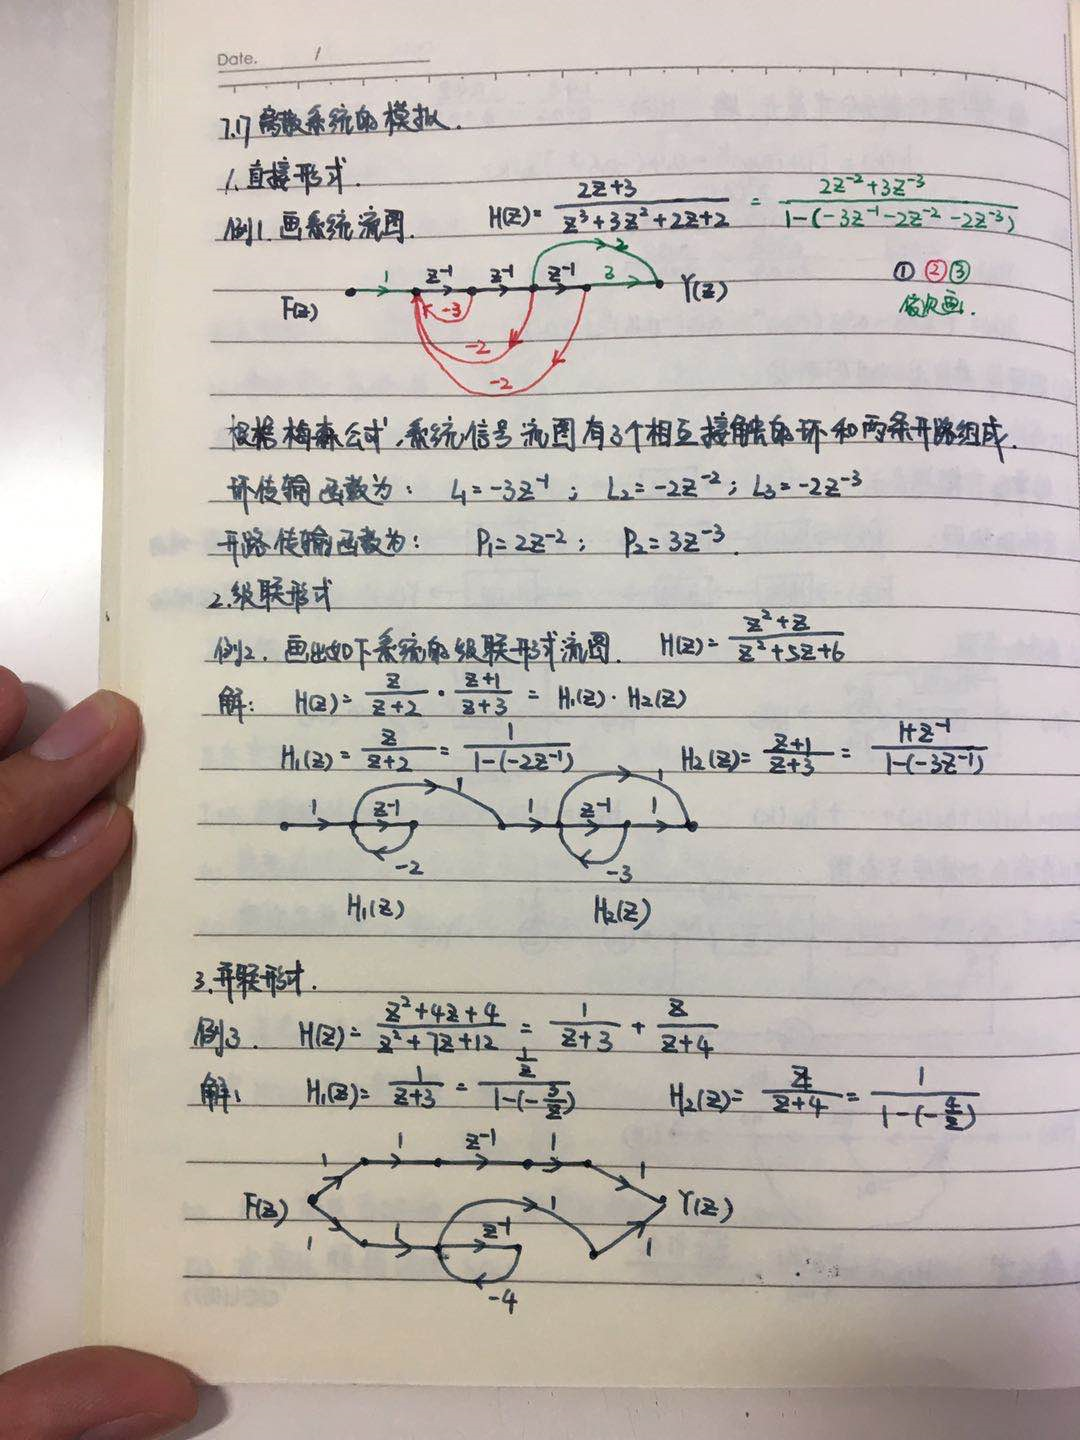 Date. 1
7.17 离散系统的模拟.
1. 直接形式.
例1. 画系统流图. H(z)= (2z+3)/(z³+3z²+2z+2) = (2z⁻²+3z⁻³)/(1-(-3z⁻¹-2z⁻²-2z⁻³))
F(z) 1 z⁻¹ z⁻¹ z⁻¹ 2 3 Y(z) ① ② ③
-3 依次画.
-2
-2
根据梅森公式,系统信号流图有3个相互接触的环和两条开路组成.
环传输函数为: L₁=-3z⁻¹; L₂=-2z⁻²; L₃=-2z⁻³
开路传输函数为: P₁=2z⁻²; P₂=3z⁻³.
2.级联形式
例2. 画出如下系统的级联形式流图. H(z)= (z²+z)/(z²+5z+6)
解: H(z)= z/(z+2) · (z+1)/(z+3) = H₁(z)·H₂(z)
H₁(z)= z/(z+2) = 1/(1-(-2z⁻¹)) H₂(z)= (z+1)/(z+3) = (1+z⁻¹)/(1-(-3z⁻¹))
1 z⁻¹ 1 1 z⁻¹ 1 1
-2 -3
H₁(z) H₂(z)
3.并联形式.
例3. H(z)= (z²+4z+4)/(z²+7z+12) = 1/(z+3) + z/(z+4)
解: H₁(z)= 1/(z+3) = (1/z)/(1-(-3/z)) H₂(z)= z/(z+4) = 1/(1-(-4/z))
1 1 z⁻¹ 1 1
F(z) Y(z)
1 1 z⁻¹ 1 1
-4